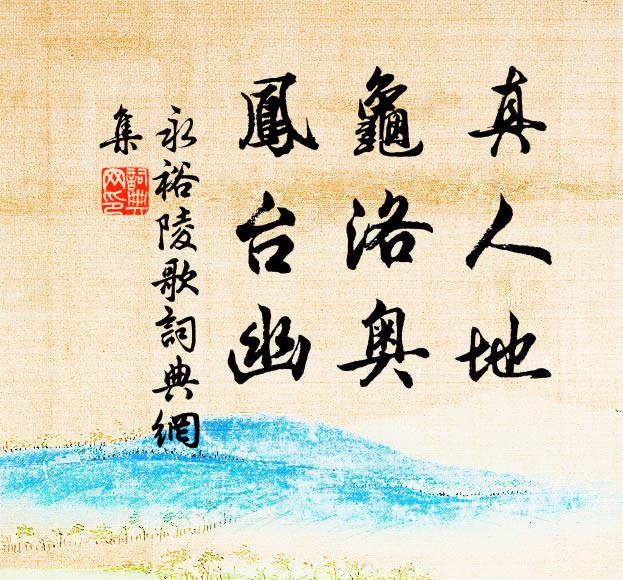 真人地
龜洛奧
鳳台幽
永裕陵歌詞典網
集
詞典
网印